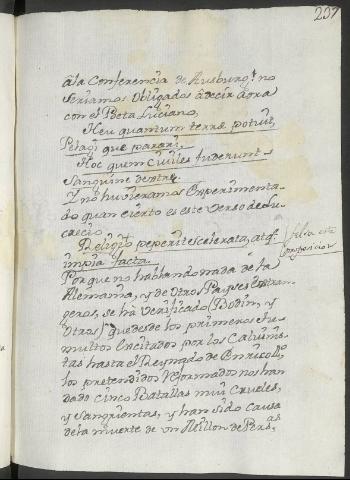 237
âla Conferencia de Ausburg! no
seriamos Obligados âdecir âora
con el Poeta Luciano,
Heu quantum terræ potuit,
Pelagi que parari,
Hoc quem Civiles fuderunt
Sanguine dextræ.
Y no huvieramos Experimenta-
do quan cierto es este Verso de Lu-
crecio,
Religio peperit scelerata, atq.
impia facta.
Porque no hablando nada de la
Alemania, y de otros Payses Extran-
geros, se ha Verificado (Bodin, y
Otros) que desde los primeros tu-
multos Excitados por los Calvinis-
tas hasta el Reynado de
los pretendidos reformados nos han
dado cinco Batallas mui crueles,
y Sangrientas, y han sido causa
dela muerte de un Millon de Pers.as
falsa esta
proposicion